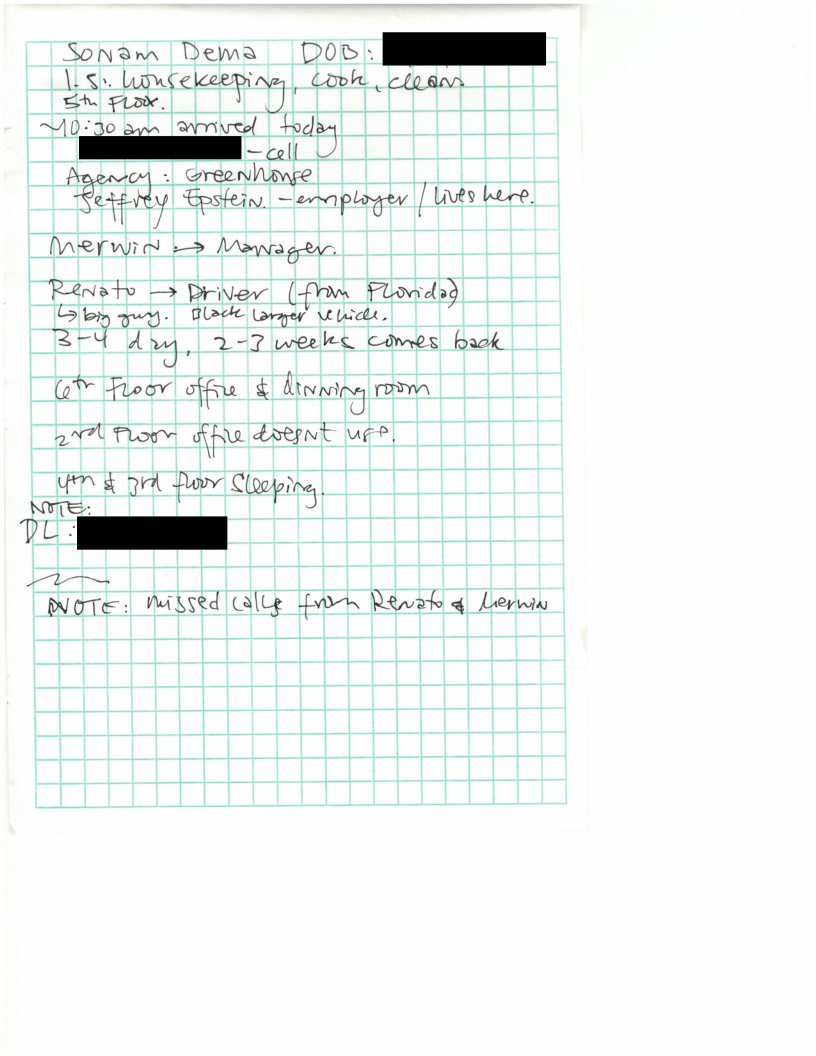 Sonam Dema DOB:
1.5: housekeeping, cook, clean
5th Floor.
~10:30 am arrived today
-cell
Agency: Greenhouse
Jeffrey Epstein. - employer / lives here.
Merwin → Manager.
Renato → Driver (from Florida)
↳ big guy. Black larger vehicle.
3-4 day, 2-3 weeks comes back
6th Floor office & dinning room
2nd Floor office doesnt use.
4th & 3rd floor sleeping.
NOTE:
DL:
NOTE: missed calls from Renato & Merwin